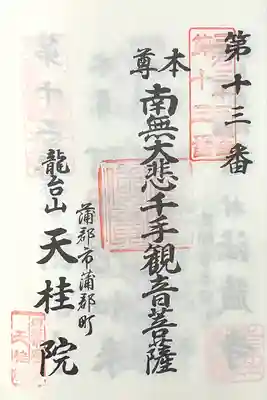 第十三番
本尊
南無大悲千手観音菩薩
蒲郡市蒲郡町
龍台山 天桂院